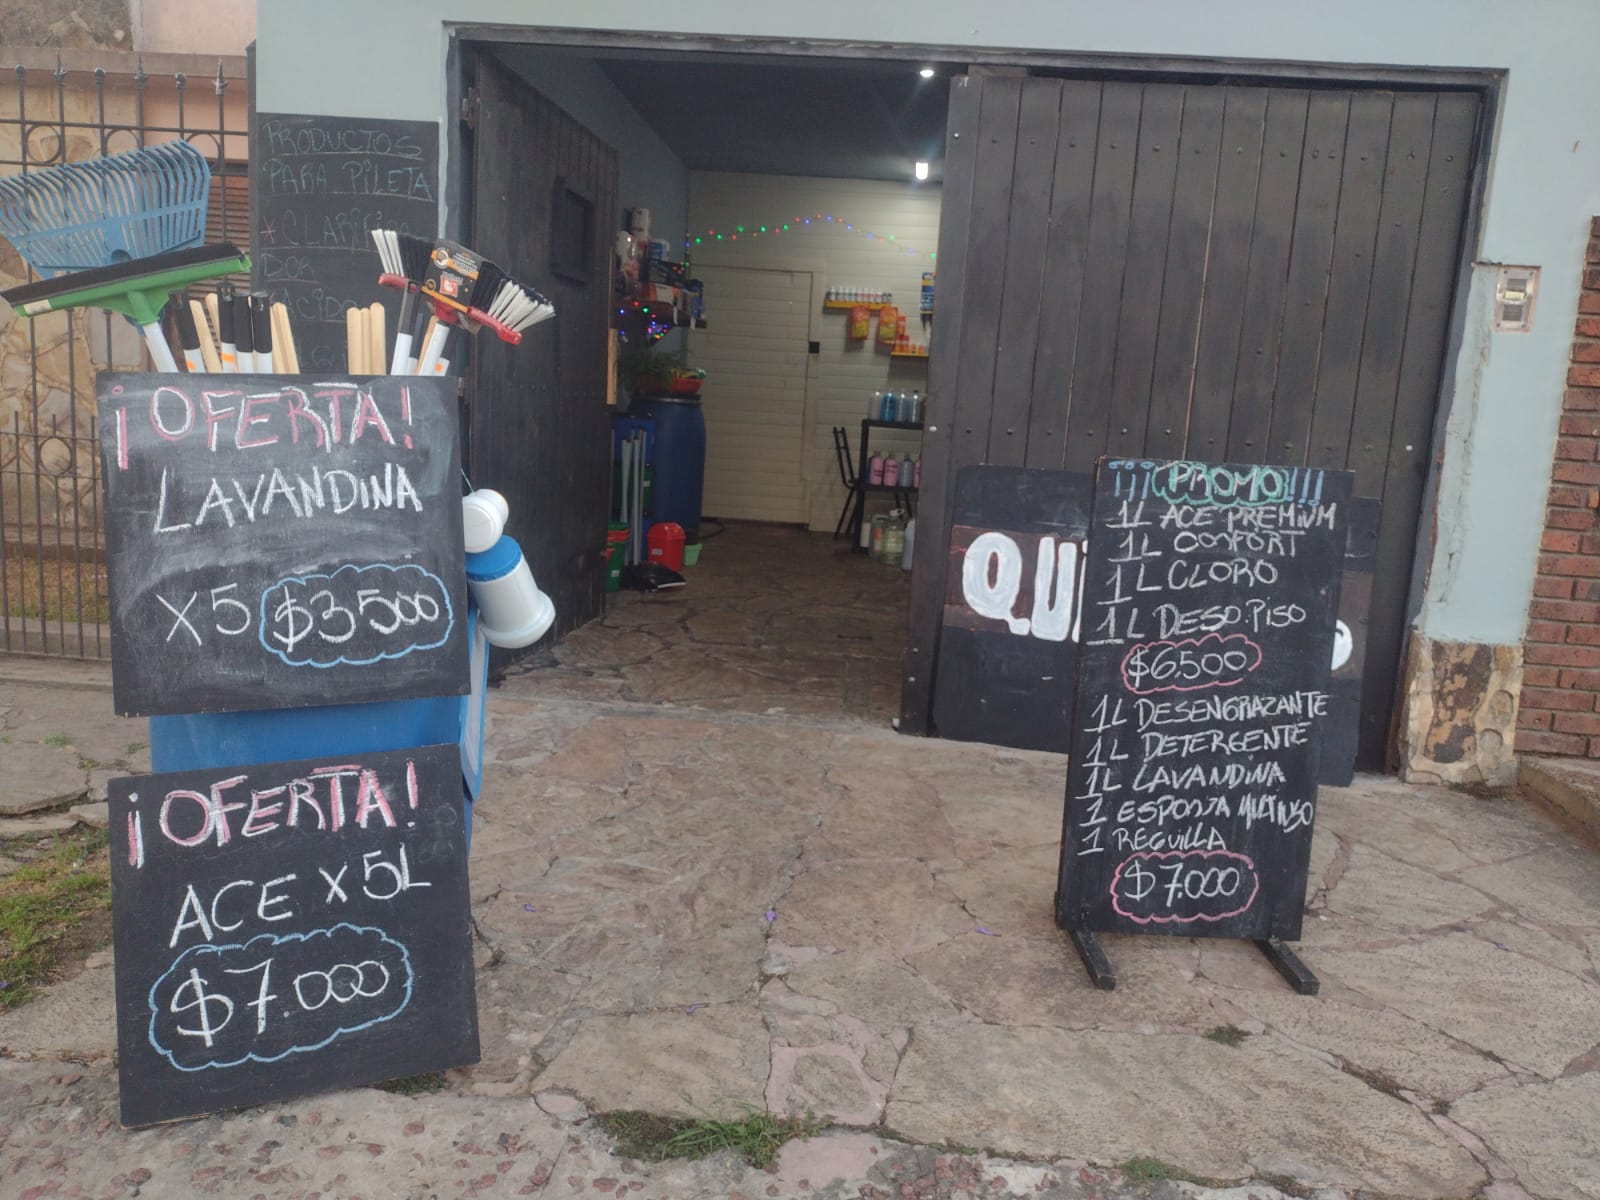 PRODUCTOS
PARA PILETA
* CLARIFICA
DOR
* ACIDO
¡OFERTA!
LAVANDINA
X5 $3500
¡OFERTA!
ACE X 5L
$7.000
QUI
¡¡¡PROMO!!!
1L ACE PREMIUM
1L CONFORT
1L CLORO
1L DESO.PISO
$6.500
1L DESENGRAZANTE
1L DETERGENTE
1L LAVANDINA
1 ESPONJA MULTIUSO
1 REGUILLA
$7.000